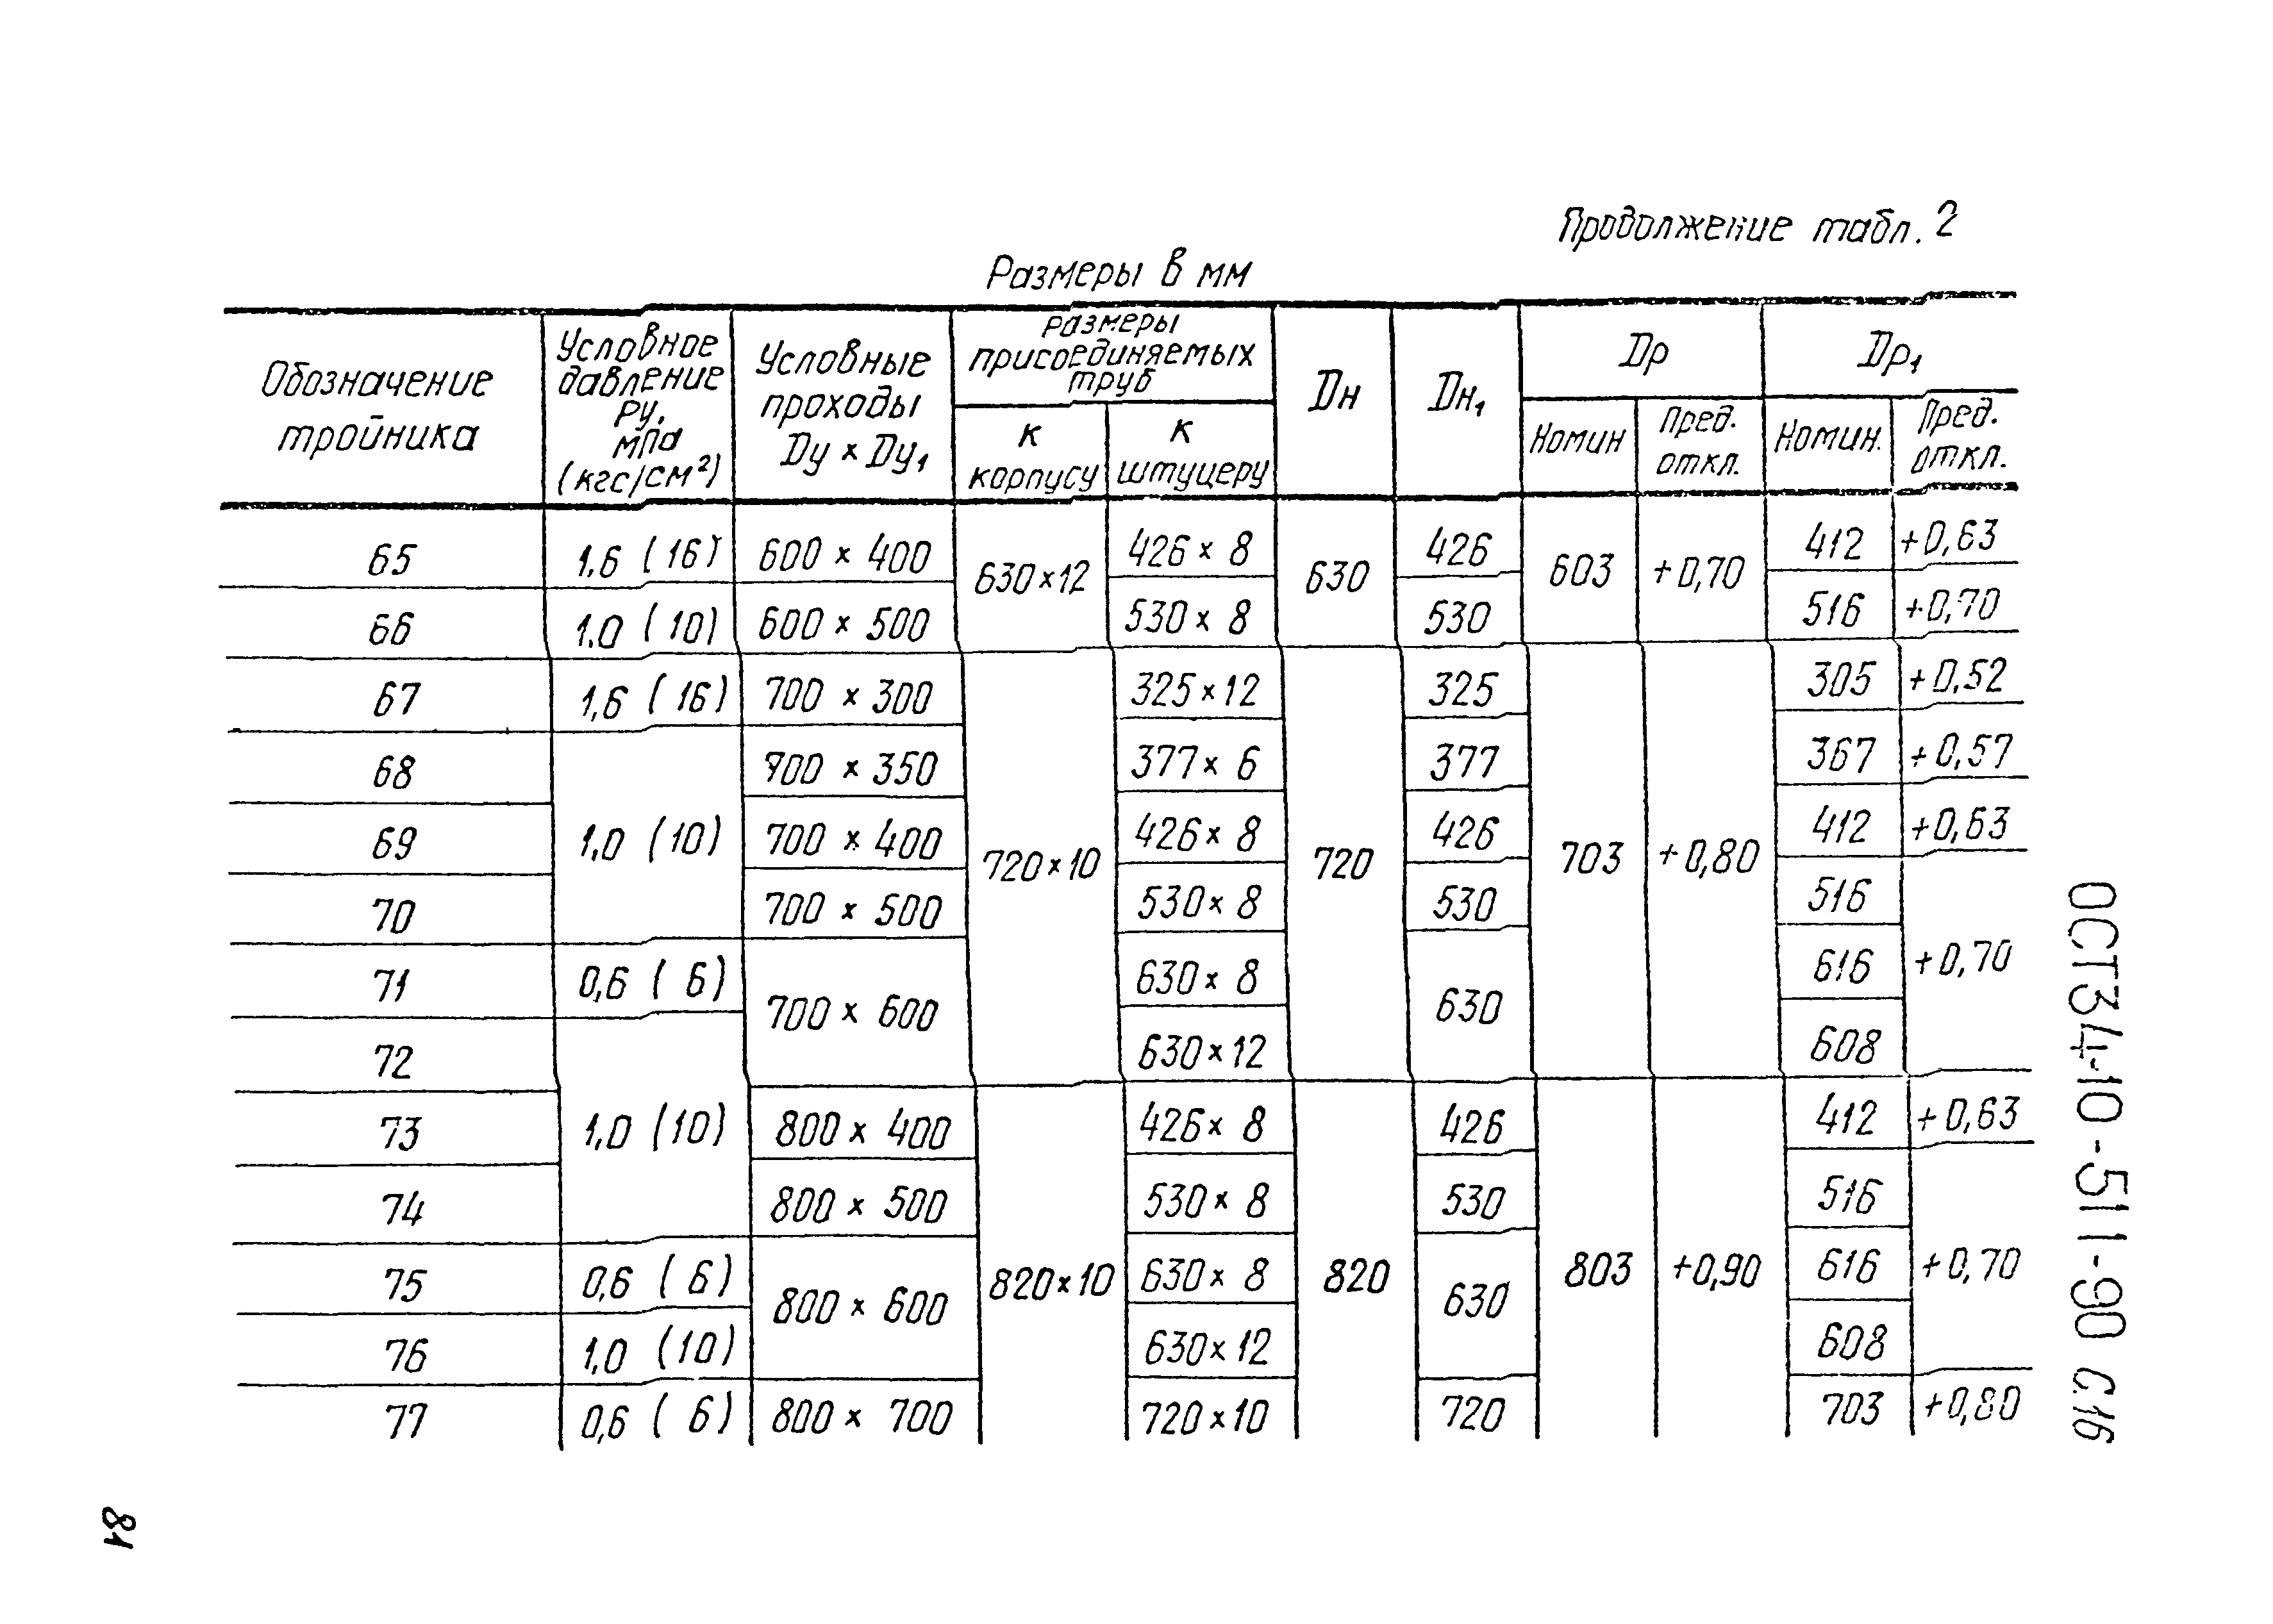 Продолжение табл. 2
Размеры в мм
Обозначение тройника | Условное давление Ру, мПа (кгс/см²) | Условные проходы Ду × Ду₁ | Размеры присоединяемых труб | Дн | Дн₁ | Др | Др₁
к корпусу | к штуцеру | Номин | Пред. откл. | Номин. | Пред. откл.
65 | 1,6 (16) | 600 × 400 | 630×12 | 426 × 8 | 630 | 426 | 603 | +0,70 | 412 | +0,63
66 | 1,0 (10) | 600 × 500 | 530 × 8 | 530 | 516 | +0,70
67 | 1,6 (16) | 700 × 300 | 720×10 | 325×12 | 720 | 325 | 703 | +0,80 | 305 | +0,52
68 | 1,0 (10) | 700 × 350 | 377× 6 | 377 | 367 | +0,57
69 | 700 × 400 | 426× 8 | 426 | 412 | +0,63
70 | 700 × 500 | 530× 8 | 530 | 516 | +0,70
71 | 0,6 ( 6) | 700 × 600 | 630× 8 | 630 | 616
72 | 1,0 (10) | 630×12 | 608
73 | 800 × 400 | 820×10 | 426× 8 | 820 | 426 | 803 | +0,90 | 412 | +0,63
74 | 800 × 500 | 530× 8 | 530 | 516 | +0,70
75 | 0,6 ( 6) | 800 × 600 | 630× 8 | 630 | 616
76 | 1,0 (10) | 630×12 | 608
77 | 0,6 ( 6) | 800 × 700 | 720×10 | 720 | 703 | +0,80
ОСТ34-10-511-90 С.16
81